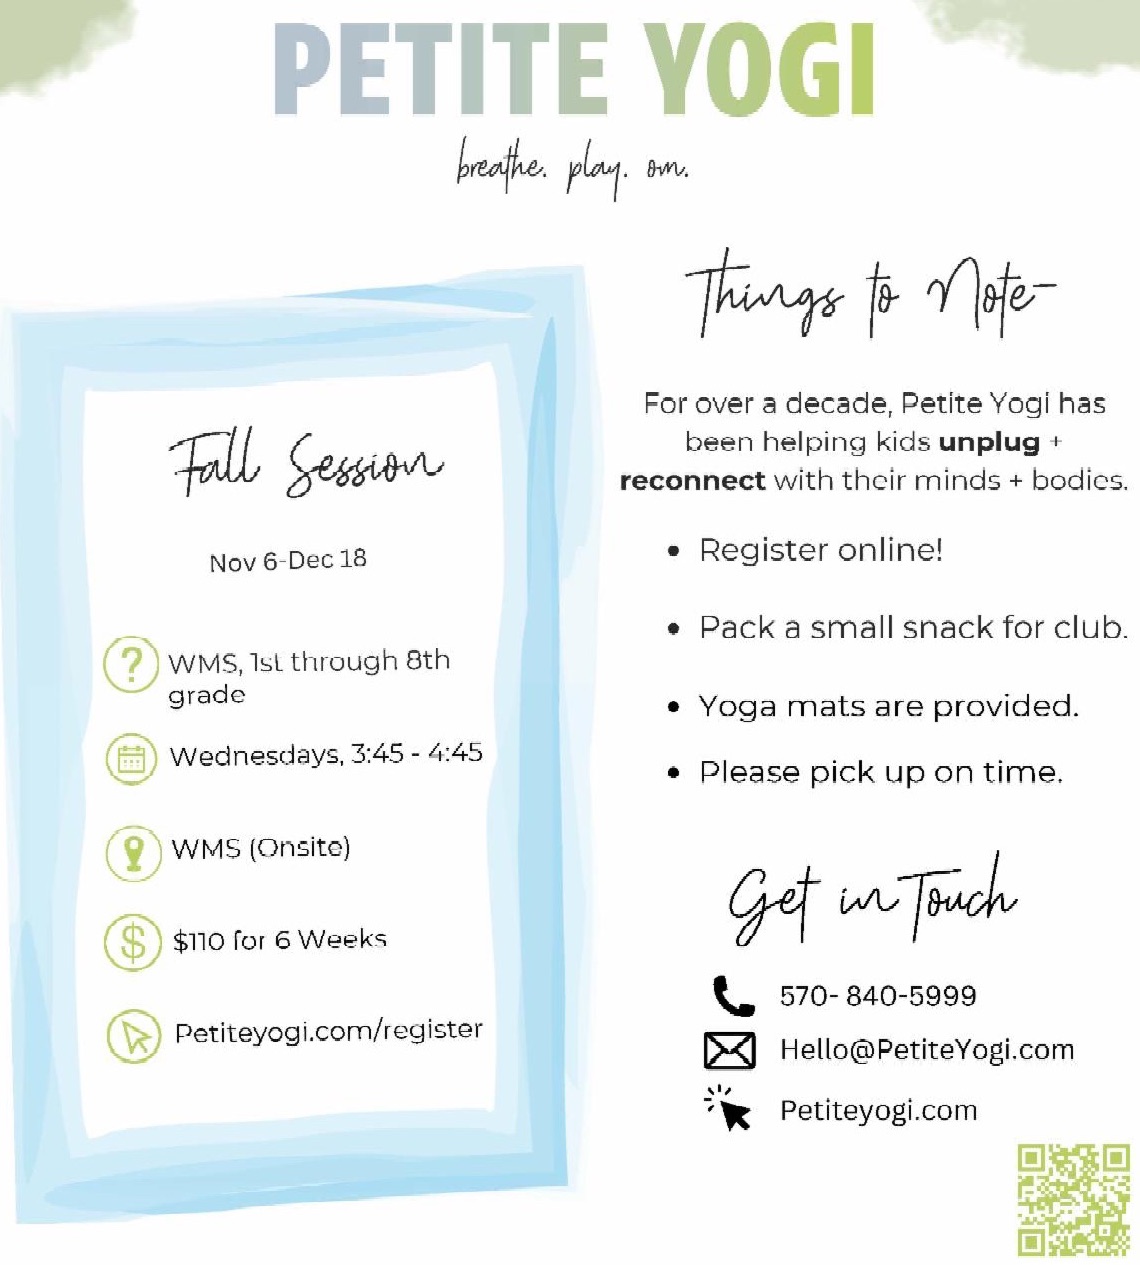 PETITE YOGI
breathe. play. om.
Fall Session
Nov 6-Dec 18
WMS, 1st through 8th
grade
Wednesdays, 3:45 - 4:45
WMS (Onsite)
$110 for 6 Weeks
Petiteyogi.com/register
Things to Note-
For over a decade, Petite Yogi has
been helping kids unplug +
reconnect with their minds + bodies.
• Register online!
• Pack a small snack for club.
• Yoga mats are provided.
• Please pick up on time.
Get in Touch
570- 840-5999
Hello@PetiteYogi.com
Petiteyogi.com